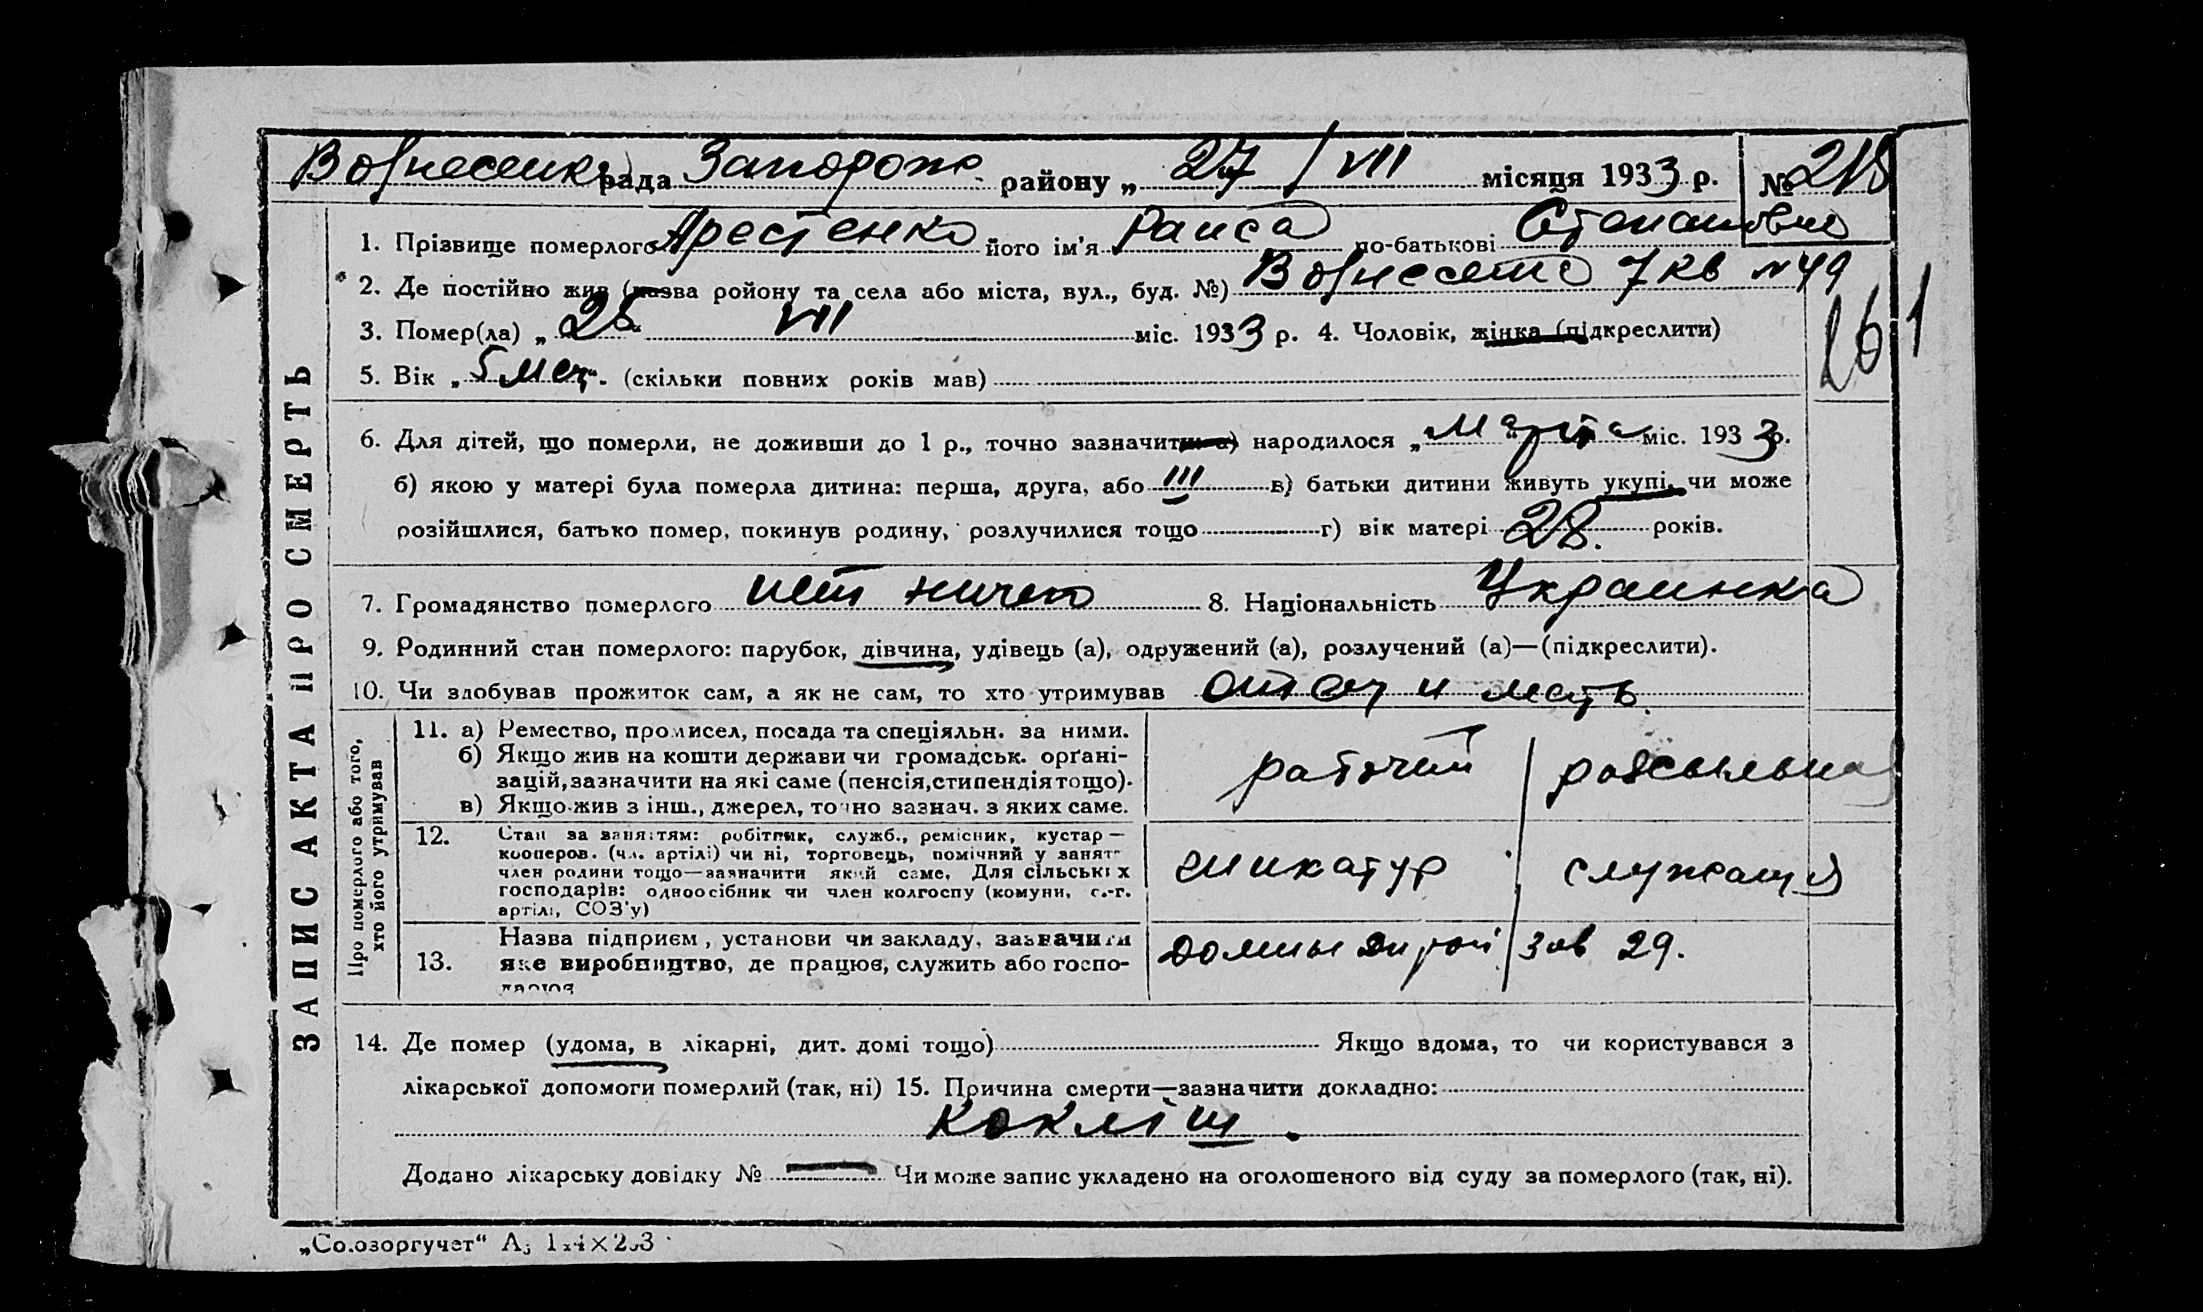 Вознесенк рада Запорож. району „ 27/VII місяця 1933 р. № 218
1. Прізвище померлого Арестенко його ім'я Раиса по-батькові Степановна
* 2. Де постійно жив (назва ройону та села або міста, вул., буд. №) 7 кв № 49
3. Помер(ла) „ VII міс. 1933 р. 4. Чоловік, жінка (підкреслити)
261
5. Вік „ 5 мец. (скільки повних років мав)
6. Для дітей, що померли, не доживши до 1 р., точно зазначити а) народилося „ Марта міс. 1933 р.
б) якою у матері була померла дитина: перша, друга, або III в) батьки дитини живуть укупі, чи може
розійшлися, батько помер, покинув родину, розлучилися тощо г) вік матері 28. років.
7. Громадянство померлого нет 8. Національність Украинка
9. Родинний стан померлого: парубок, дівчина, удівець (а), одружений (а), розлучений (а)—(підкреслити).
10. Чи здобував прожиток сам, а як не сам, то хто утримував отец и мать.
ЗАПИС АКТА ПРО СМЕРТЬ
Про померлого або того,
хто його утримував
11. а) Ремество, промисел, посада та спеціяльн. за ними.
б) Якщо жив на кошти держави чи громадськ. орґані-
зацій, зазначити на які саме (пенсія, стипендія тощо).
в) Якщо жив з інш., джерел, точно зазнач. з яких саме.
рабочий / розсыльная
12. Стан за заняттям: робітник, служб., ремісник, кустар —
кооперов. (чл. артілі) чи ні, торговець, помічний у занят
член родини тощо—зазначити який саме, Для сільських
господарів: одноосібник чи член колгоспу (комуни, с.-г.
артілі, СОЗ'у)
штукатур служащая
Назва підприєм, установи чи закладу, зазначити
13. яке виробництво, де працює, служить або госпо-
дарює
зав 29.
14. Де помер (удома, в лікарні, дит. домі тощо) Якщо вдома, то чи користувався з
лікарської допомоги померлий (так, ні) 15. Причина смерти—зазначити докладно:
кокліш.
Додано лікарську довідку № — Чи може запис укладено на оголошеного від суду за померлого (так, ні).
„Союзоргучет“